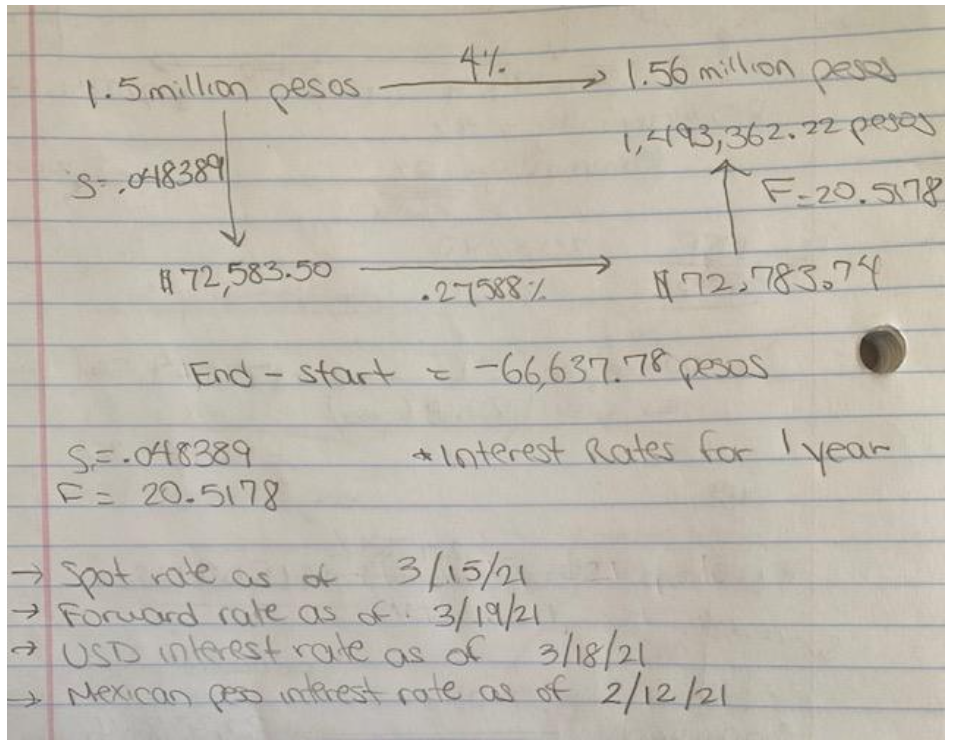 4%
1.5 million pesos → 1.56 million pesos
1,493,362.22 pesos
S=.048389
F=20.5178
$72,583.50 → $72,783.74
.27588%
End - start = -66,637.78 pesos
S=.048389 *Interest Rates for 1 year
F= 20.5178
→ Spot rate as of 3/15/21
→ Forward rate as of: 3/19/21
→ USD interest rate as of 3/18/21
→ Mexican peso interest rate as of 2/12/21